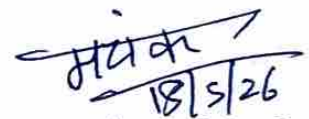 मयंक
18/5/26